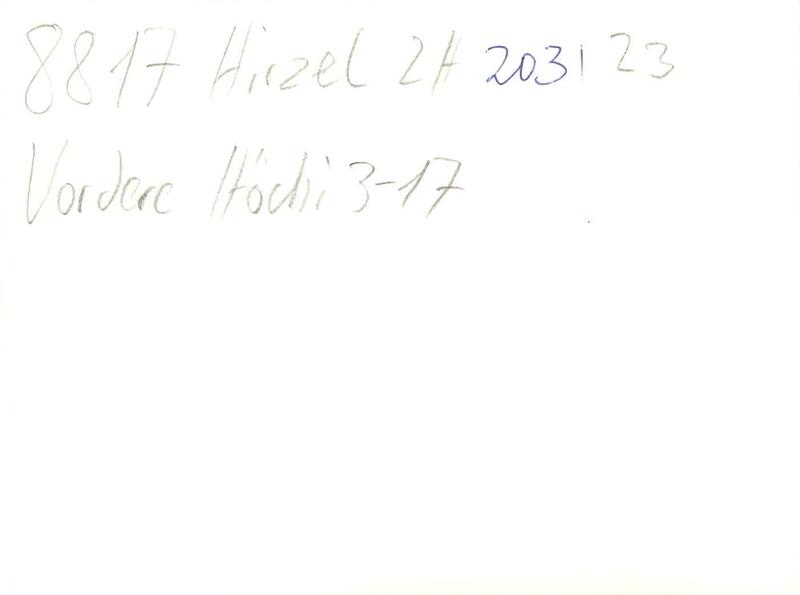 8817 Hirzel ZH 203 | 23
Vordere Höchi 3-17